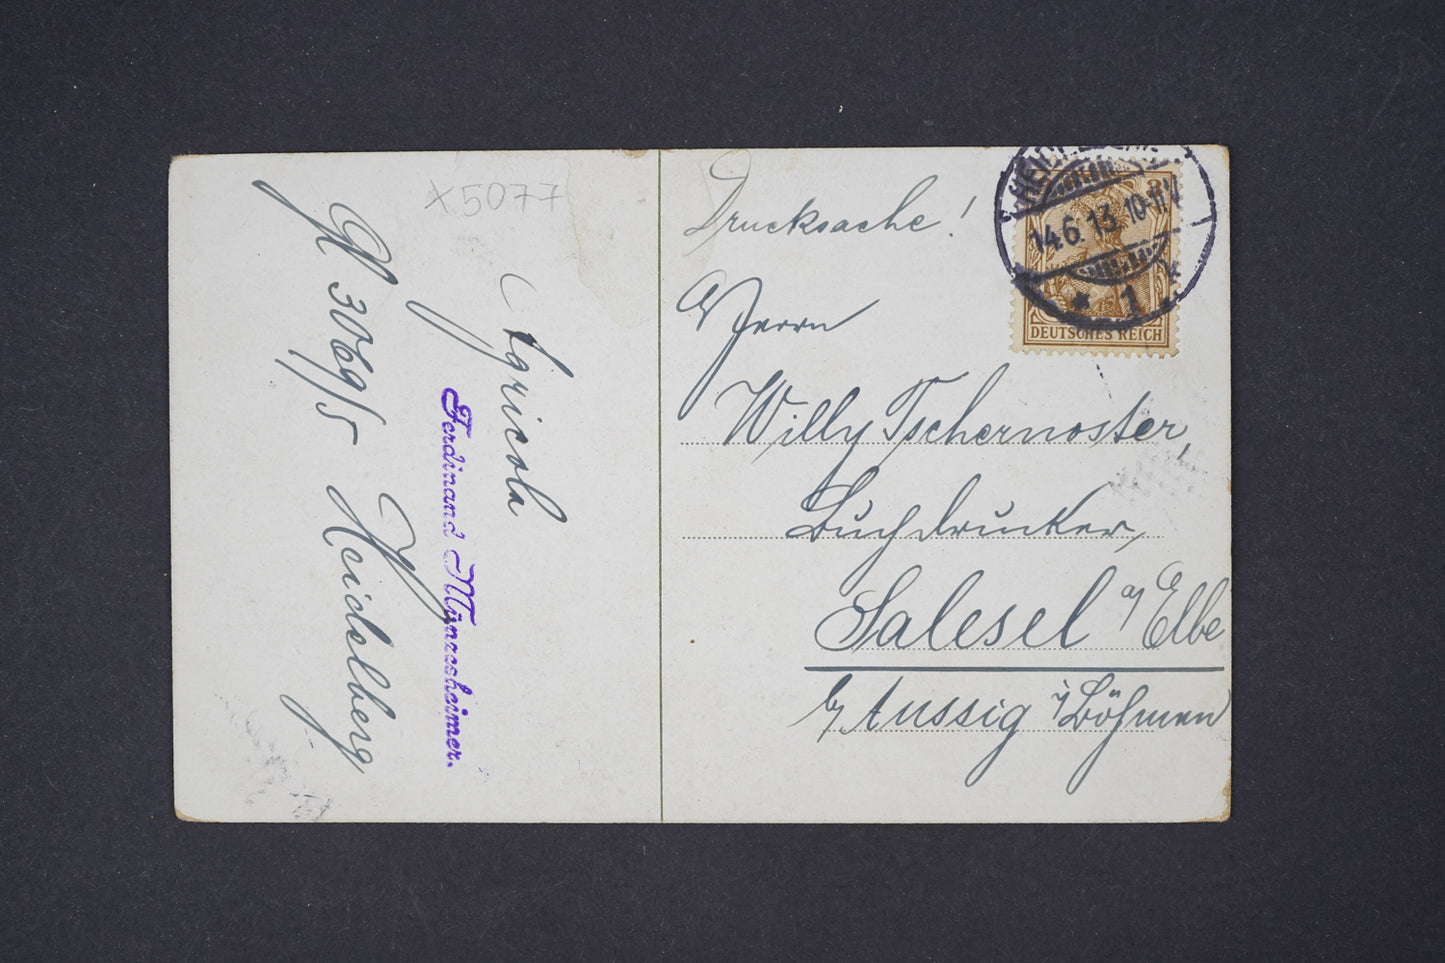 x 5077
Agricola
Ferdinand Münzesheimer.
3069/5 Heidelberg
Drucksache!
Herrn
Willy Tschernoster,
Buchdrucker,
Salesel a/Elbe
b/ Aussig i/ Böhmen
14.6.13. 10-11 V
* 1 k
DEUTSCHES REICH